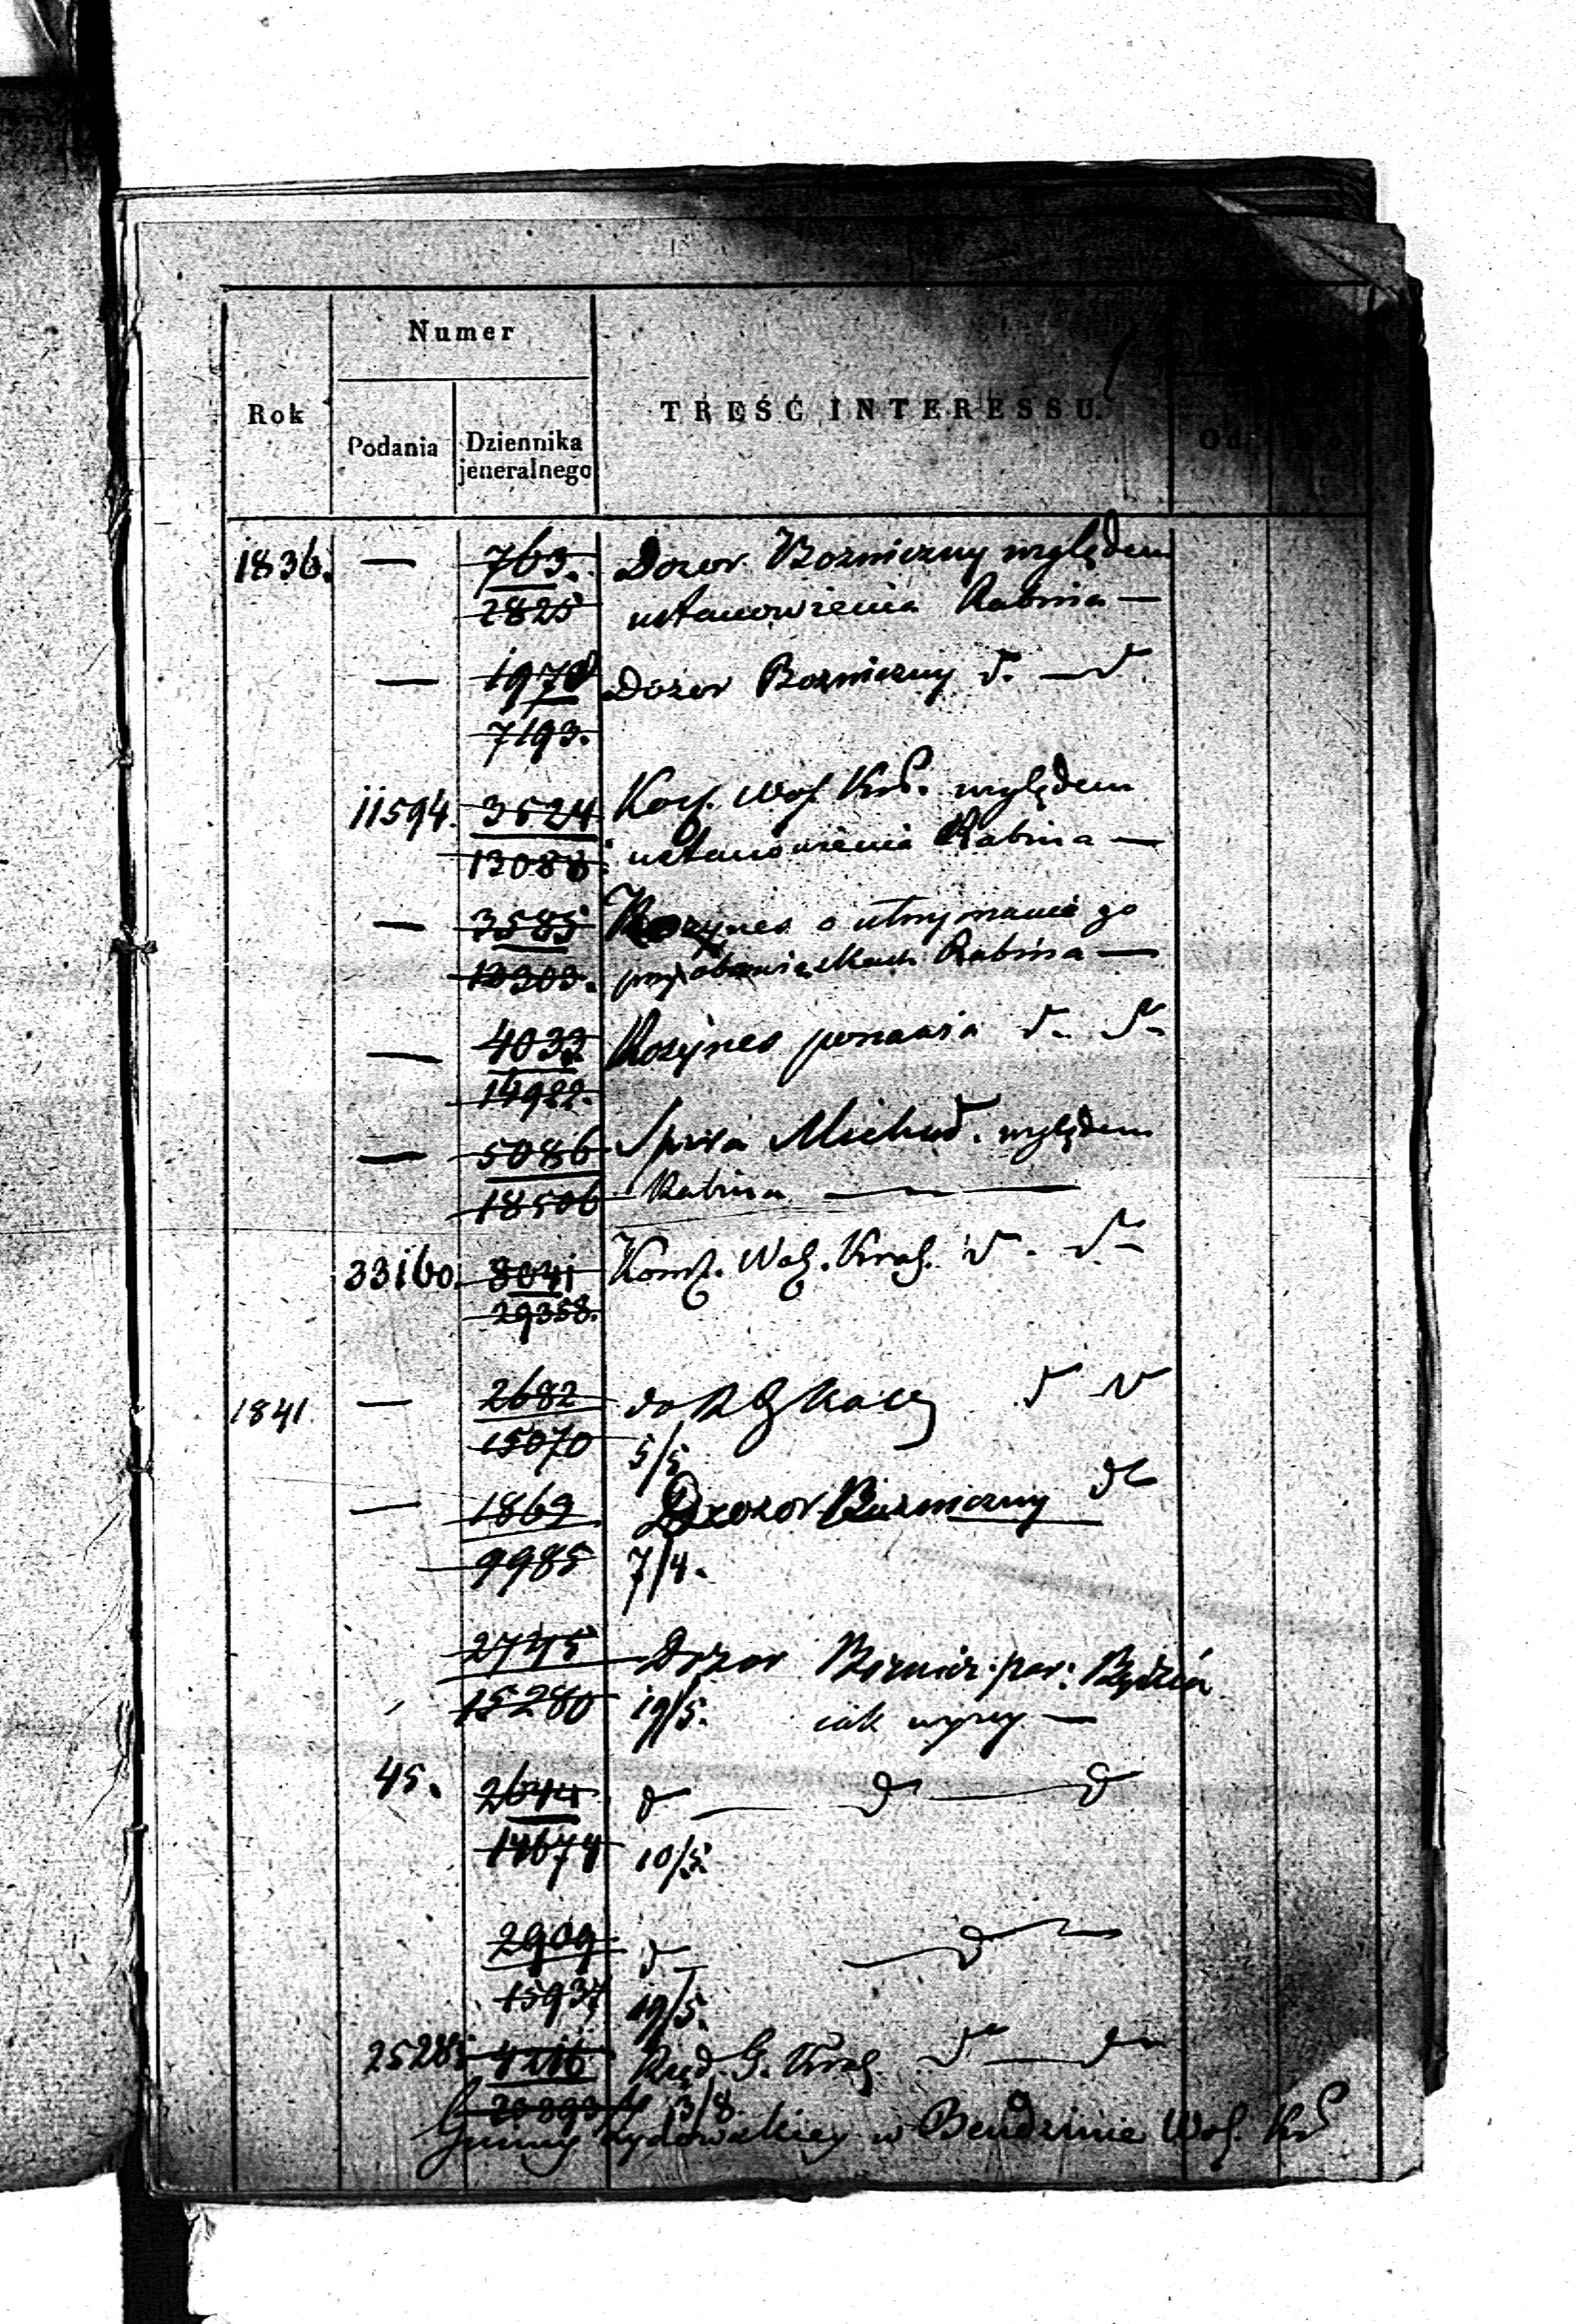 Numer
Rok
TREŚĆ INTERESSU.
Podania
Dziennika
jeneralnego
Od
1836. — 763. Dozor Bozniczny względem
2825 ustanowienia Rabina —
— 1978 Dozor Bozniczny d. — d
7193.
11594. 3524 Kom. Woj. Krak. względem
13088. ustanowienia Rabina —
— 3585 o utrzymanie go
13303. przy obowiązkach Rabina —
— 4033. Rozynes ponawia d. d.
14922.
— 5086 Spira względem
18506 Rabina —
33160. 8041 Kom. Woj. Krak. d. d.
29358.
1841. — 2682 do d d
15070 5/5
— 1869 Dozor Bozniczny d
9985 7/4.
2745 Dozor Boznicz. par: Będzin
15280 19/5. iak wyzey —
45. 2644 d — d — d
14674 10/5.
2909 d — d —
15937 19/5.
25285 4216 Rząd. G. Krak. d — d
20893 3/8.
Gminy żydowskiey w Bendzinie Woj. Kr